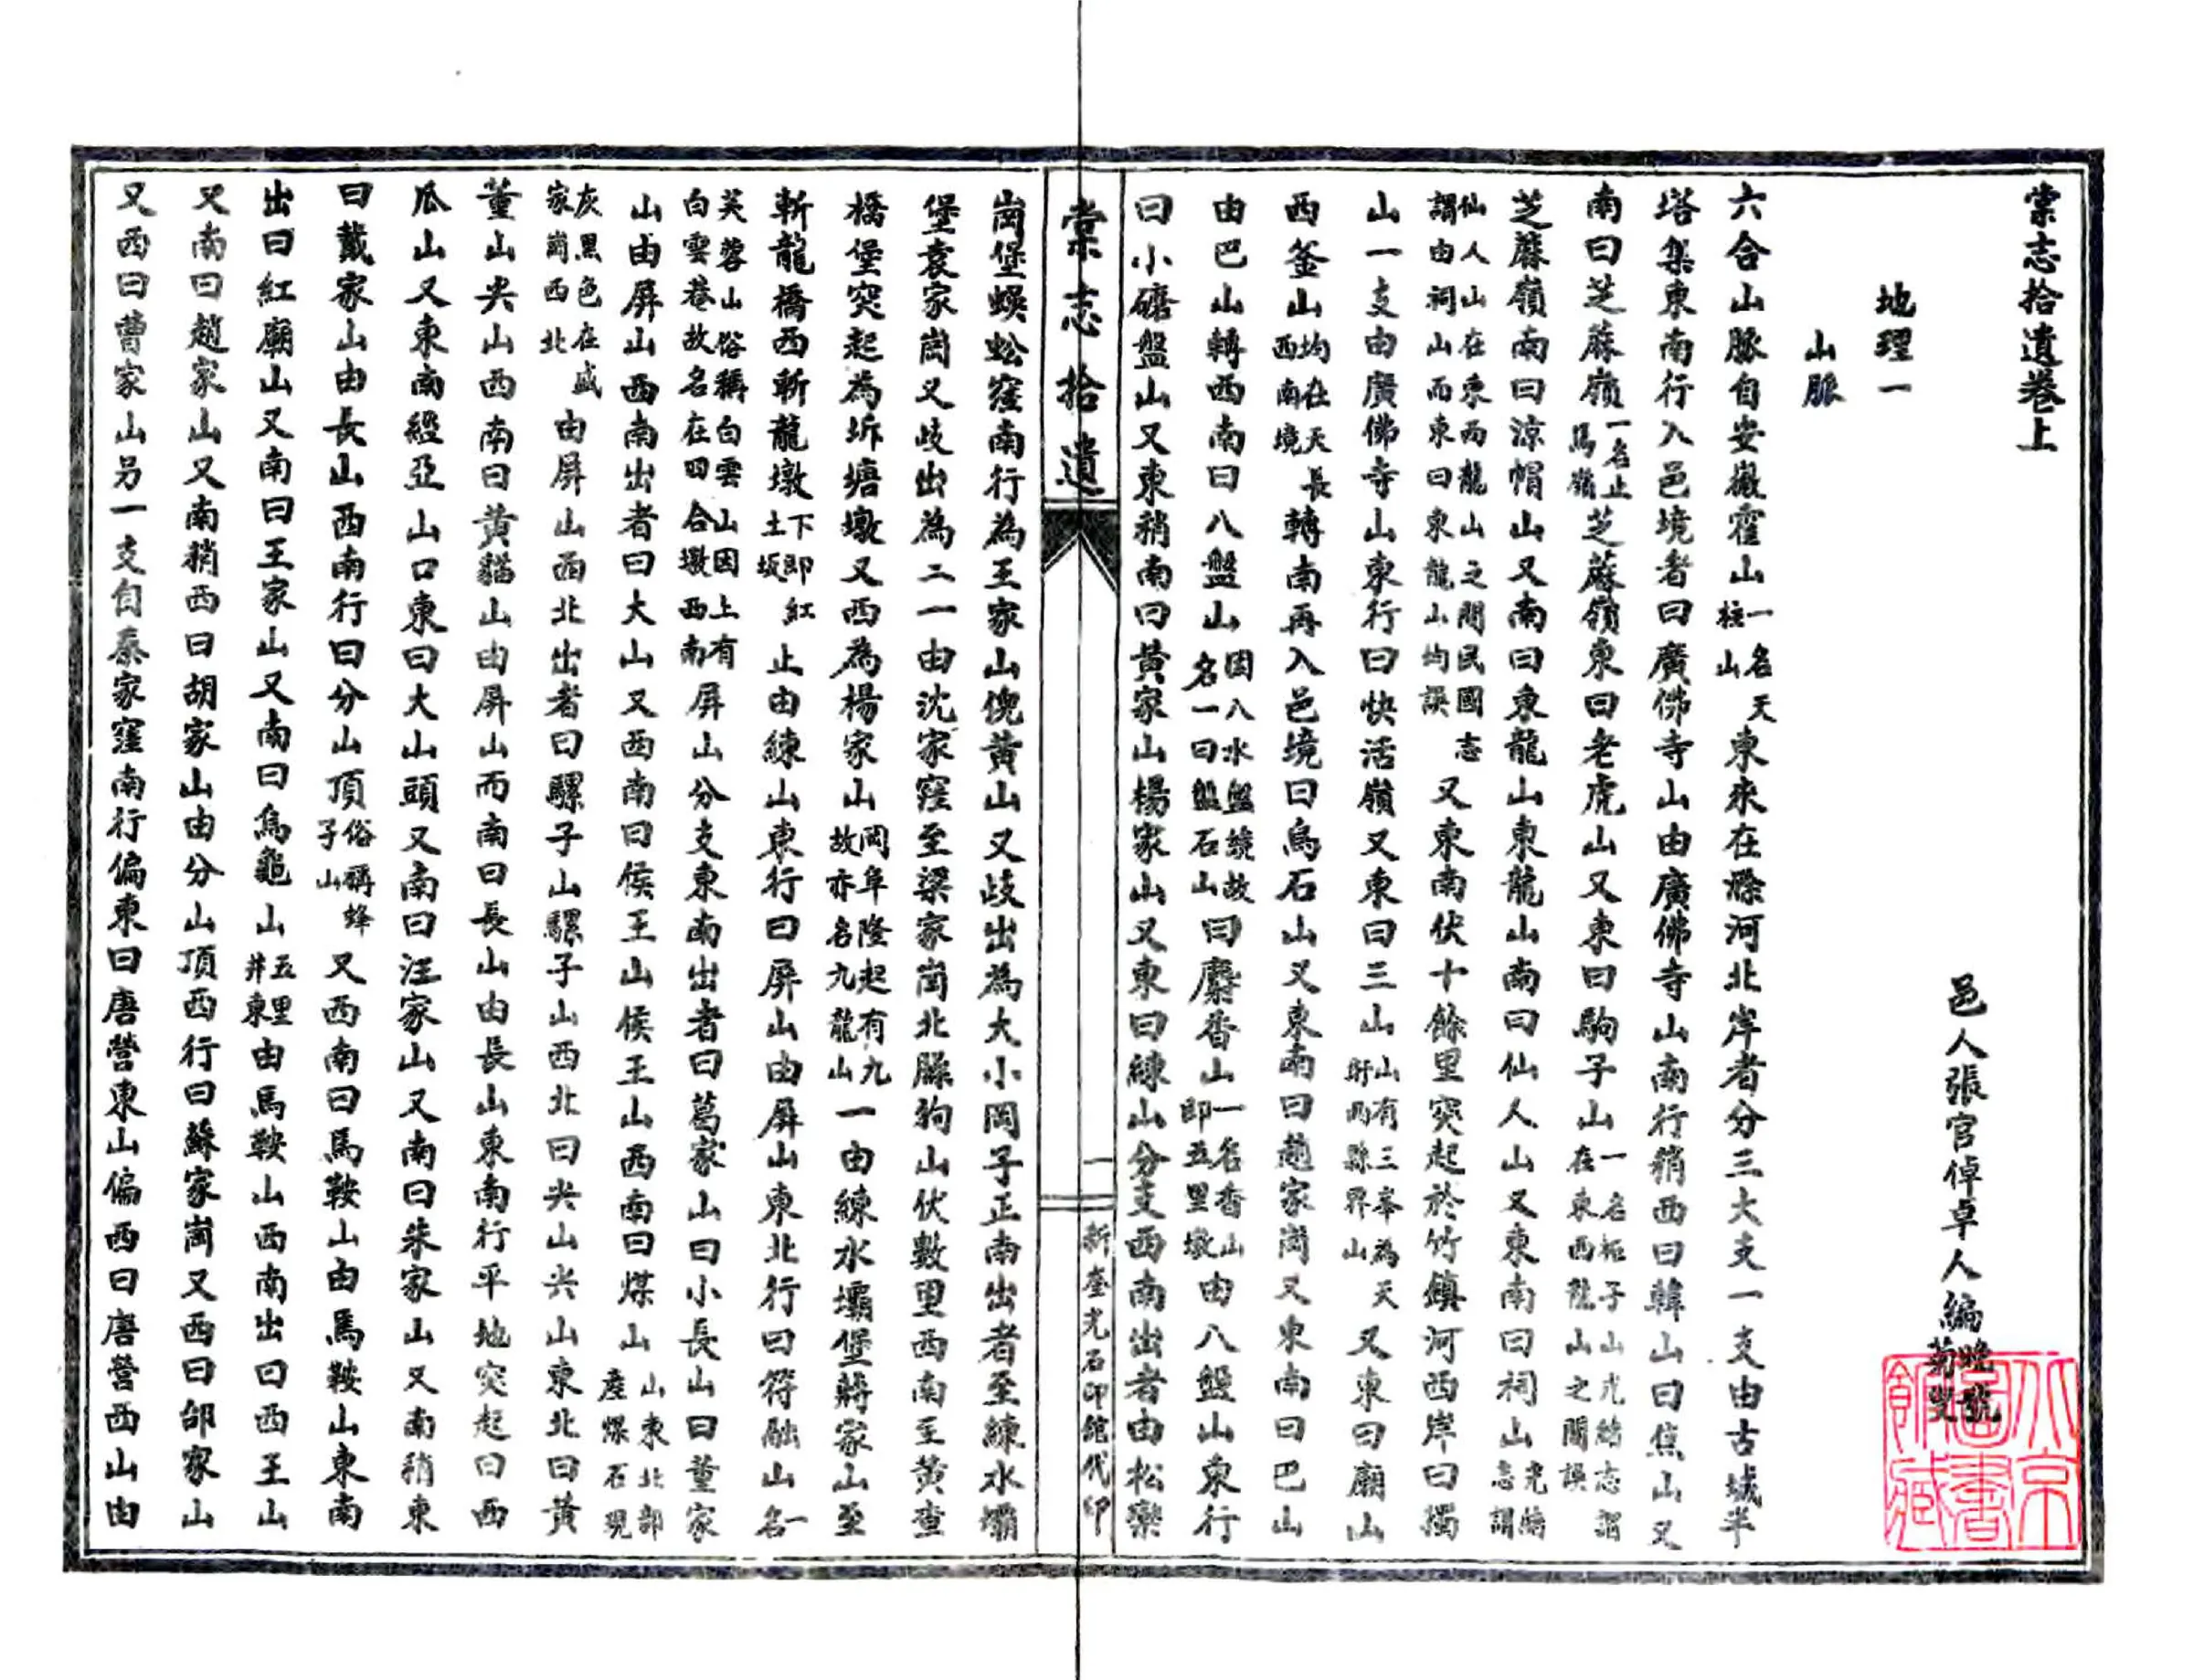 棠志拾遺卷上
邑人張官倬卓人編晚號菊叟
地理一
山脈
六合山脈自安徽霍山一名天柱山東來在滁河北岸者分三大支一支由古城半
塔集東南行入邑境者曰廣佛寺山由廣佛寺山南行稍西曰韓山曰焦山又
南曰芝蔴嶺一名止馬嶺芝蔴嶺東曰老虎山又東曰駒子山一名柜子山光緒志謂在東西龍山之間誤
芝蔴嶺南曰涼帽山又南曰東龍山東龍山南曰仙人山又東南曰祠山光緒志謂
仙人山在東西龍山之間民國志謂由祠山而東曰東龍山均誤又東南伏十餘里突起於竹鎮河西岸曰獨
山一支由廣佛寺山東行曰快活嶺又東曰三山山有三峯為天盱兩縣界山又東曰廟山
西釜山均在天長西南境轉南再入邑境曰烏石山又東南曰趙家崗又東南曰巴山
由巴山轉西南曰八盤山因八水盤繞故名一曰盤石山曰麝香山一名香山即五里墩由八盤山東行
曰小磨盤山又東稍南曰黃家山楊家山又東曰練山分支西南出者由松欒
棠志拾遺
一
新奎光石印館代印
崗堡蜈蚣窪南行為王家山傀黃山又歧出為大小岡子正南出者至練水壩
堡袁家崗又歧出為二一由沈家窪至梁家崗北縣狗山伏數里西南至黃查
橋堡突起為坼塘墩又西為楊家山岡阜隆起有九故亦名九龍山一由練水壩堡蔣家山至
斬龍橋西斬龍墩下即紅土坂止由練山東行曰屏山由屏山東北行曰符融山一名
芙蓉山俗稱白雲山因上有白雲巷故名在四合墩西南屏山分支東南出者曰葛家山曰小長山曰董家
山由屏山西南出者曰大山又西南曰侯王山侯王山西南曰煤山山東北部產煤石現
灰黑色在盛家崗西北由屏山西北出者曰騾子山騾子山西北曰尖山尖山東北曰黃
董山尖山西南曰黃貓山由屏山而南曰長山由長山東南行平地突起曰西
瓜山又東南經亞山口東曰大山頭又南曰汪家山又南曰朱家山又南稍東
曰戴家山由長山西南行曰分山頂俗稱蜂子山又西南曰馬鞍山由馬鞍山東南
出曰紅廟山又南曰王家山又南曰烏龜山五里井東由馬鞍山西南出曰西王山
又南曰趙家山又南稍西曰胡家山由分山頂西行曰蘇家崗又西曰邰家山
又西曰曹家山另一支自秦家窪南行偏東曰唐營東山偏西曰唐營西山由
北京圖書館藏